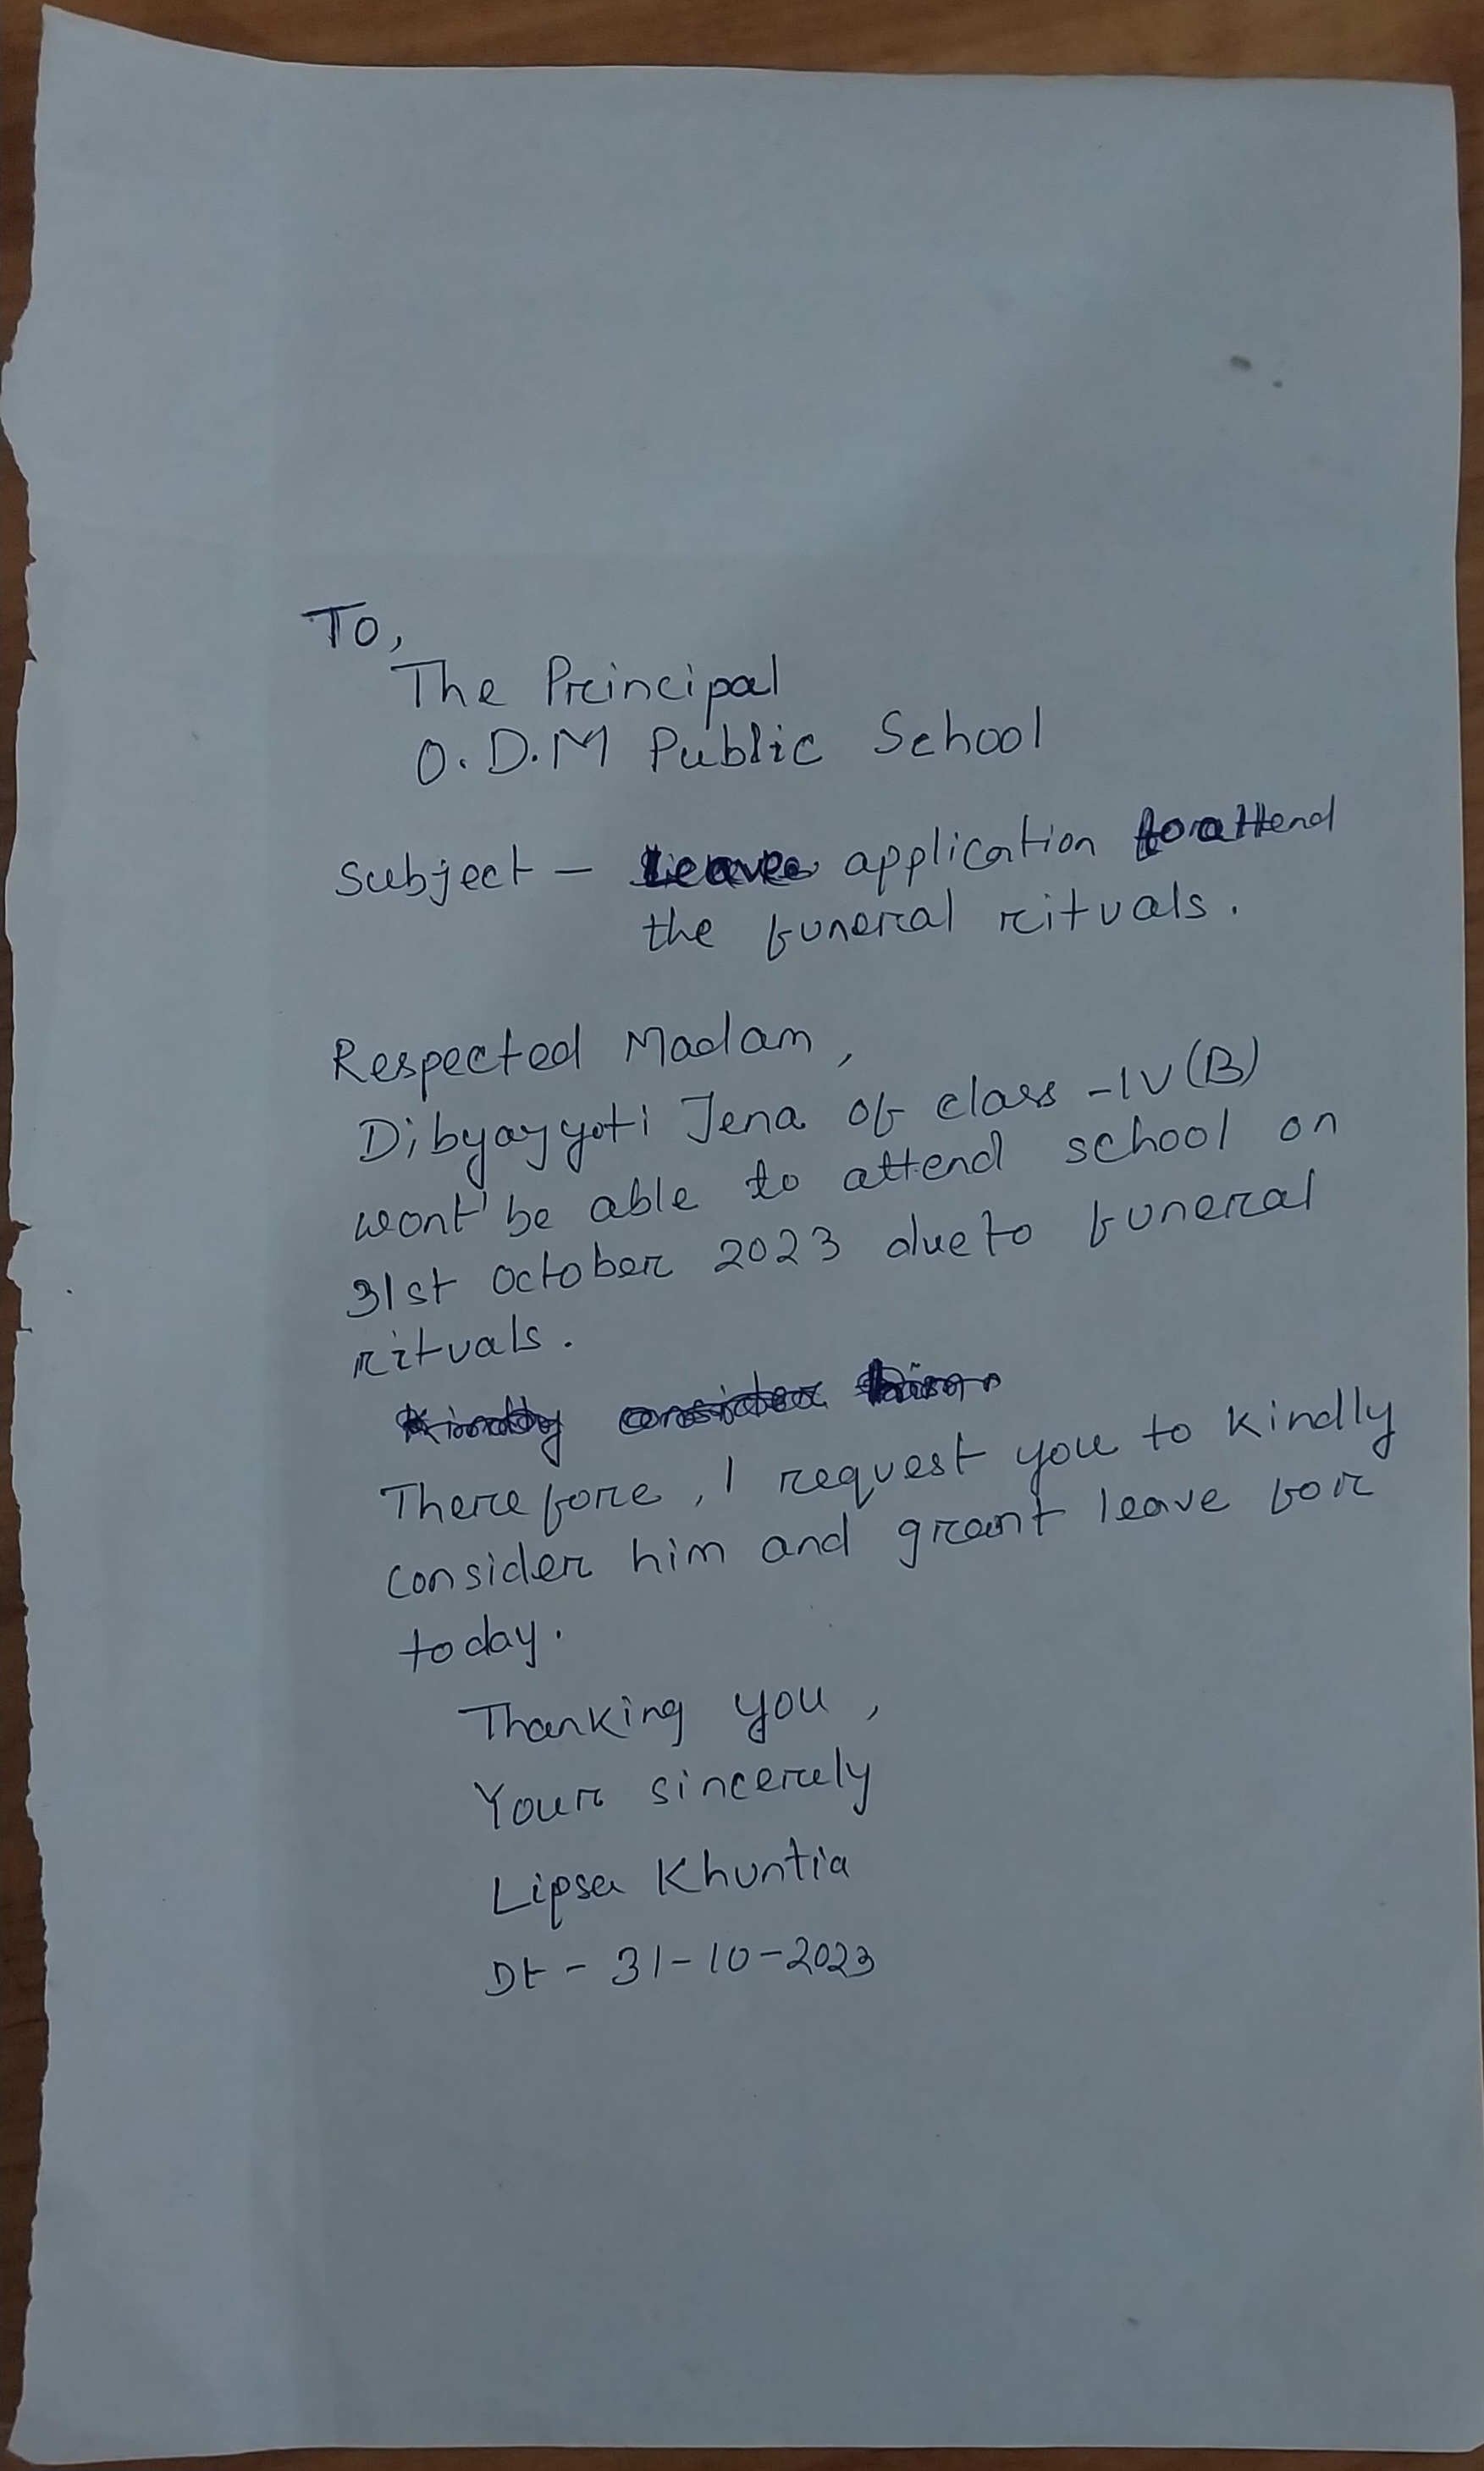 To,
The Principal
O.D.M Public School
Subject - Leave application to attend
the funeral rituals.
Respected Madam,
Dibyayyoti Jena of class -IV(B)
wont' be able to attend school on
31st october 2023 due to funeral
rituals.
Therefore, I request you to kindly
consider him and grant leave for
today.
Thanking you,
Your sincerely
Lipsa Khuntia
Dt - 31-10-2023